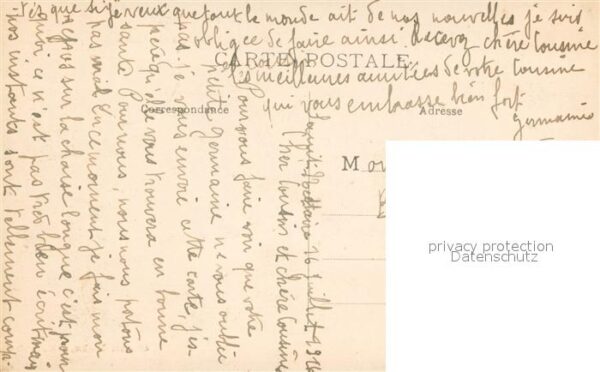 juillet 1926
cher Cousin et chère Cousine
Pour vous faire voir que votre
petite Germaine ne vous oublie
pas je vous envoie cette carte, j'es-
père qu'elle vous trouvera en bonne
santé Pour nous, nous nous portons
pas mal. En ce moment je fais mon
repos sur la chaise longue c'est pour
quoi ce n'est pas très bien écrit mais
nos instants sont tellement comp-
tés que si je veux que tout le monde ait de nos nouvelles je suis
obligée de faire ainsi Recevez chère Cousine
les meilleures amitiés de votre Cousine
qui vous embrasse bien fort
Germaine
CARTE POSTALE
Correspondance
Adresse
M
privacy protection
Datenschutz